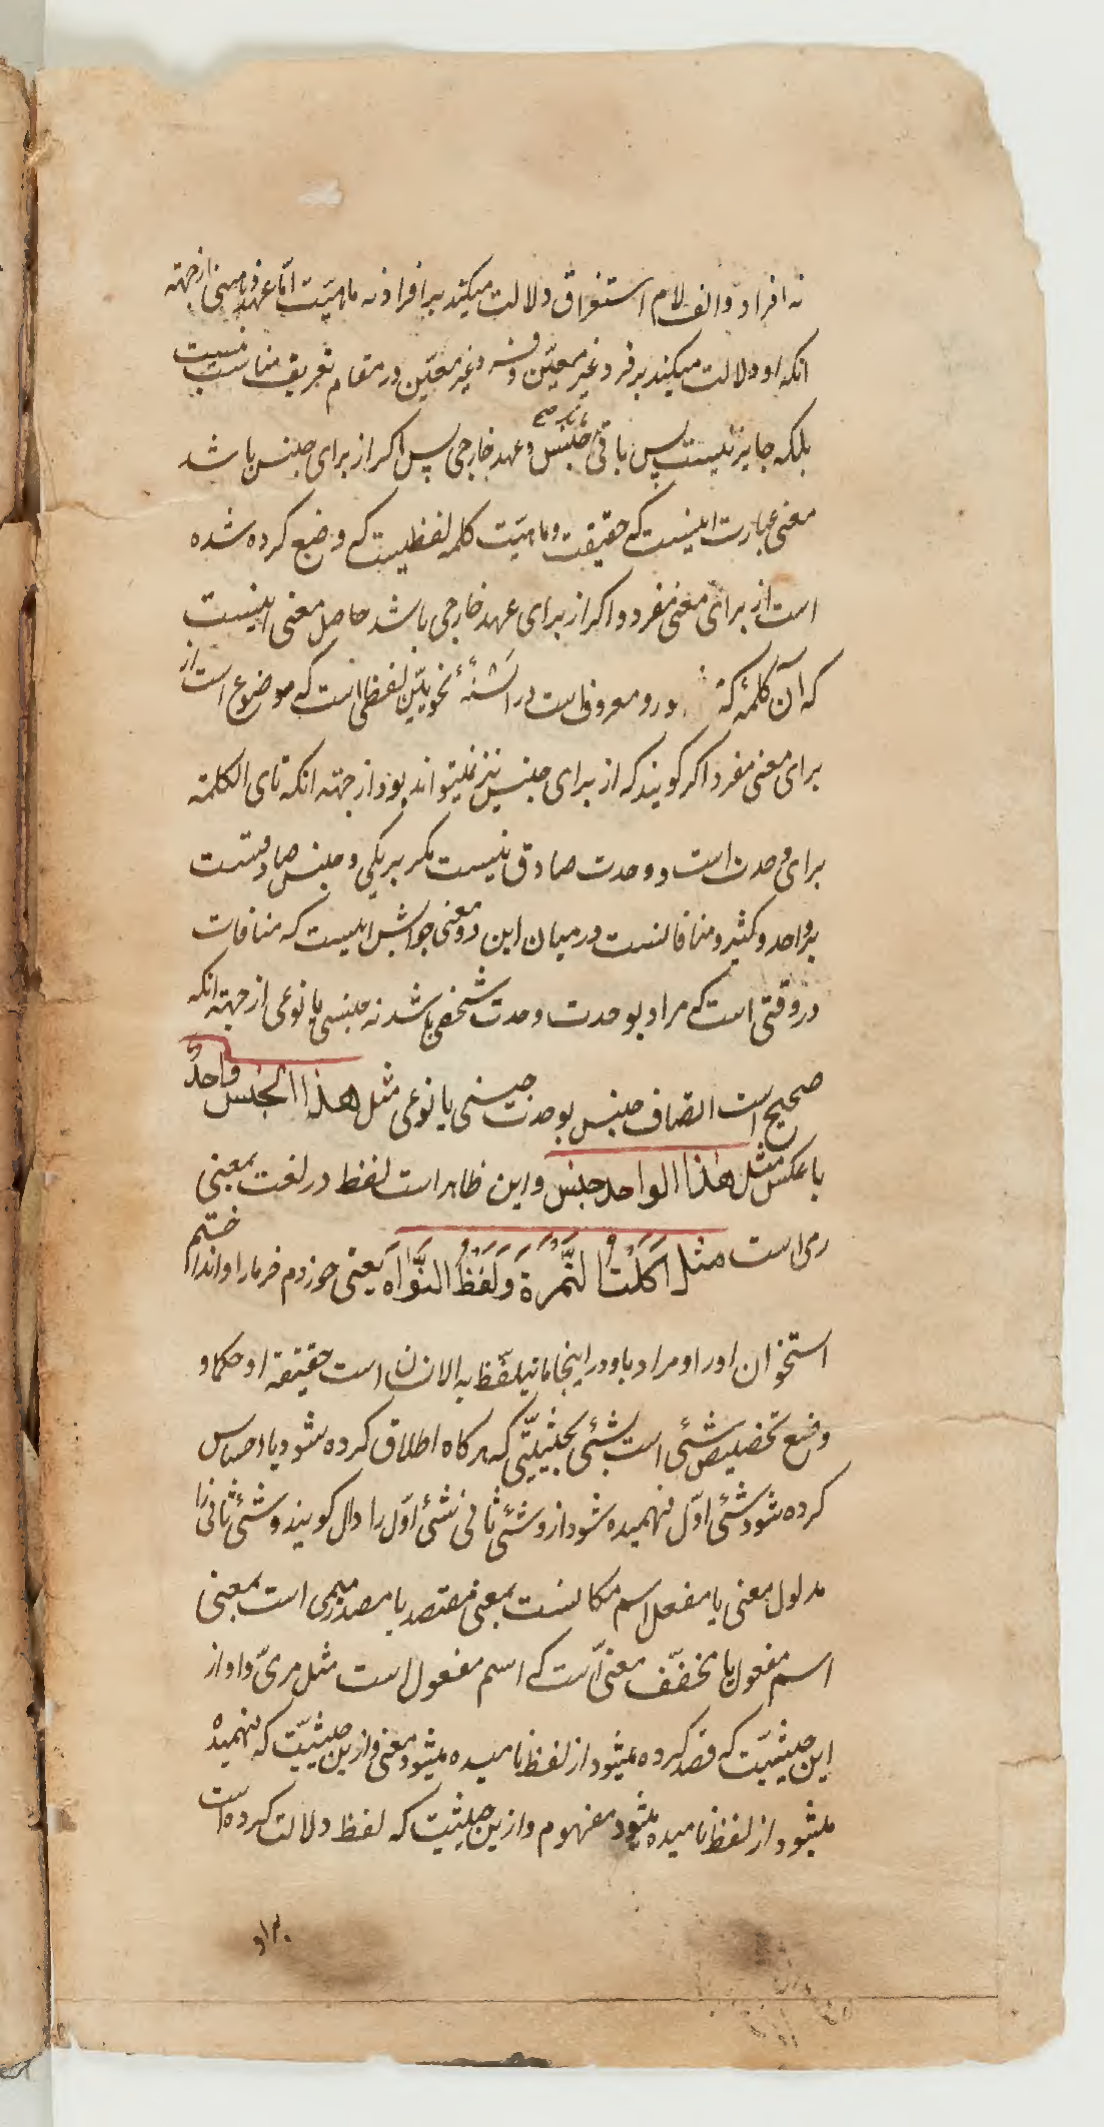 نه افراد و الف لام استغراق دلالت میکند بر افراد نه ماهیّت امّا عهد ذهنی از جهته
انکه او دلالت میکند بر فرد غیر معیّن و فرد غیر معیّن در مقام تعریف مناسب نیست
بلکه جایز نیست پس باقی ماند جنس و عهد خارجی پس اکر از برای جنس باشد
معنی عبارت اینست که حقیقت و ماهیّت کلمه لفظیست که وضع کرده شده
است از برای معنی مفرد و اکر از برای عهد خارجی باشد حاصل معنی اینست
که آن کلمهٔ که ور و معروف است در السنهٔ نحویّین لفظی است که موضوع است از
برای معنی مفرد اکر کویند که از برای جنس نیز نمیتواند بود از جهته انکه تای الکلمة
برای وحدت است و وحدت صادق نیست مکر بر یکی و جنس صادقست
بر واحد و کثیر و منافاتست در میان این دو معنی جوابش اینست که منافات
در وقتی است که مراد بوحدت وحدت شخصی باشد نه جنسی یا نوعی از جهته انکه
صحیح است اتصاف جنس بوحدت جنسی یا نوعی مثل هذا الجنس واحدٌ
با عکس مثل هذا الواحد جنس و این ظاهر است لفظ در لغت بمعنی
رمی است مثل اَکَلْتُ التَّمْرَةَ وَلَفَظْتُ النَّوَاةَ یعنی خوردم خرما را و انداختم
استخوان او را و مراد باو در اینجا ما یتلفّظ به الانسان است حقیقة او حکما و
وضع تخصیص شئی است بشئی بحیثیّتی که هر کاه اطلاق کرده شود یا احساس
کرده شود شئی اوّل فهمیده شود از و شئی ثانی شئی اوّل را دال کویند و شئی ثانی را
مدلول معنی یا مفعل اسم مکانست بمعنی مقصد یا مصدر میمی است بمعنی
اسم مفعول یا مخفّف معنیّ است که اسم مفعول است مثل مرمیّ و او از
این حیثیّت که قصد کرده میشود از لفظ نامیده میشود معنی و ازین حیثیّت که فهمیده
میشود از لفظ نامیده میشود مفهوم و ازین حیثیّت که لفظ دلالت کرده است
براو